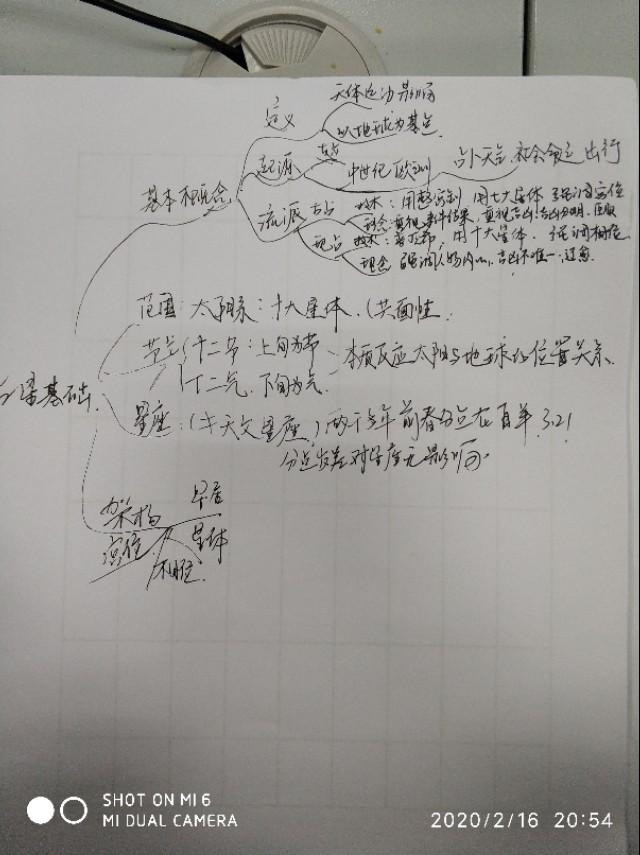 天体运动影响
定义
以地球为基点
起源
古占
中世纪欧洲
占卜天气、社会命运 出行
基本概念
流派
古占
技术:用整宫制 用七大星体 强调宫位
理念:重视事件结果,重视吉凶,吉凶分明,
现占
技术: 用十大星体. 强调相位
理念 强调人物内心,吉凶不唯一,
范围:太阳系:十大星体.(共面性.
节气
十二节:上旬为节
十二气.下旬为气
本质反应太阳与地球的位置关系.
基础.
星座:(非天文星座)两千多年前春分点在白羊 3.21
分点岁差对星座无影响
架构
星座
星体
宫位
相位.
SHOT ON MI 6
MI DUAL CAMERA
2020/2/16 20:54